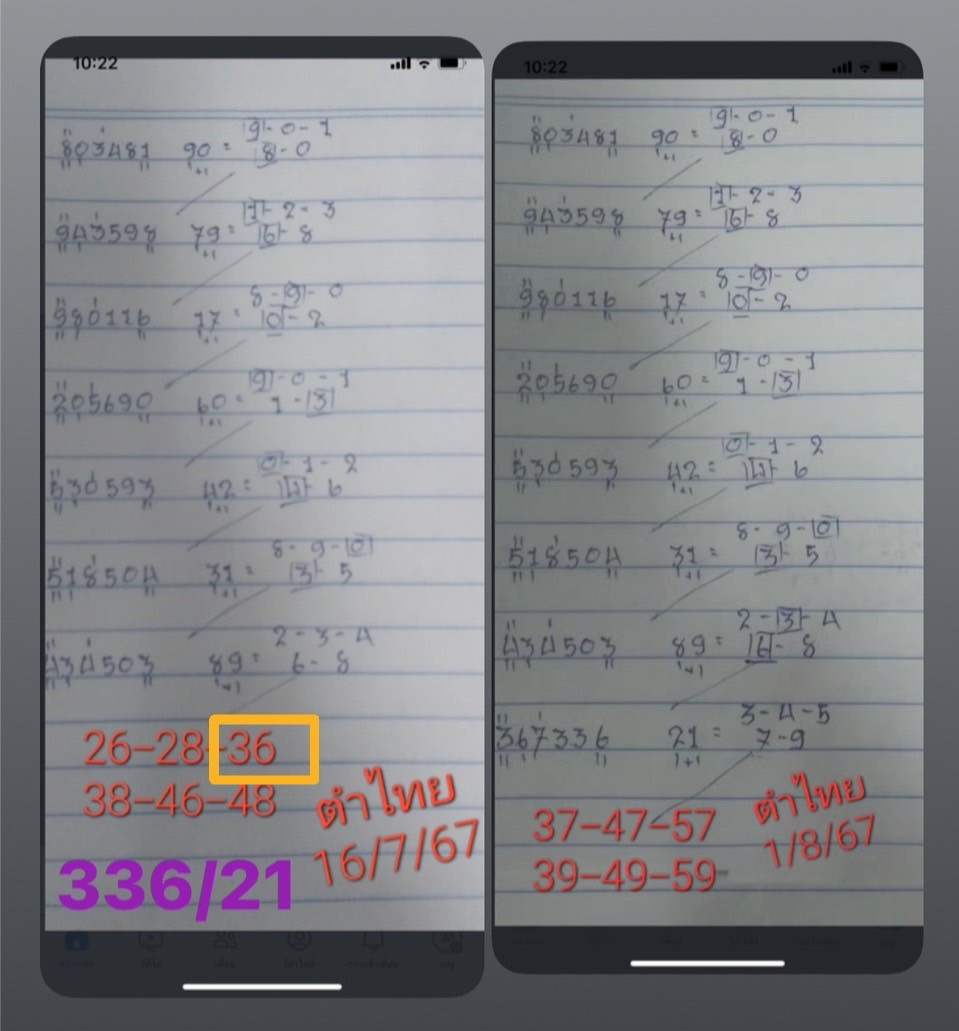 10:22
803481 90 = 9-0-1
8-0
+1
943598 79 = 1-2-3
6-8
+1
980116 17 = 8-9-0
0-2
+1
205690 60 = 9-0-1
1-3
+1
530593 42 = 0-1-2
4-6
+1
518504 31 = 8-9-0
3-5
+1
434503 89 = 2-3-4
6-8
+1
26-28-36
38-46-48
ตำไทย
16/7/67
336/21
10:22
803481 90 = 9-0-1
8-0
+1
943598 79 = 1-2-3
6-8
+1
980116 17 = 8-9-0
0-2
+1
205690 60 = 9-0-1
1-3
+1
530593 42 = 0-1-2
4-6
+1
518504 31 = 8-9-0
3-5
+1
434503 89 = 2-3-4
6-8
+1
367336 21 = 3-4-5
7-9
+1
37-47-57
39-49-59
ตำไทย
1/8/67